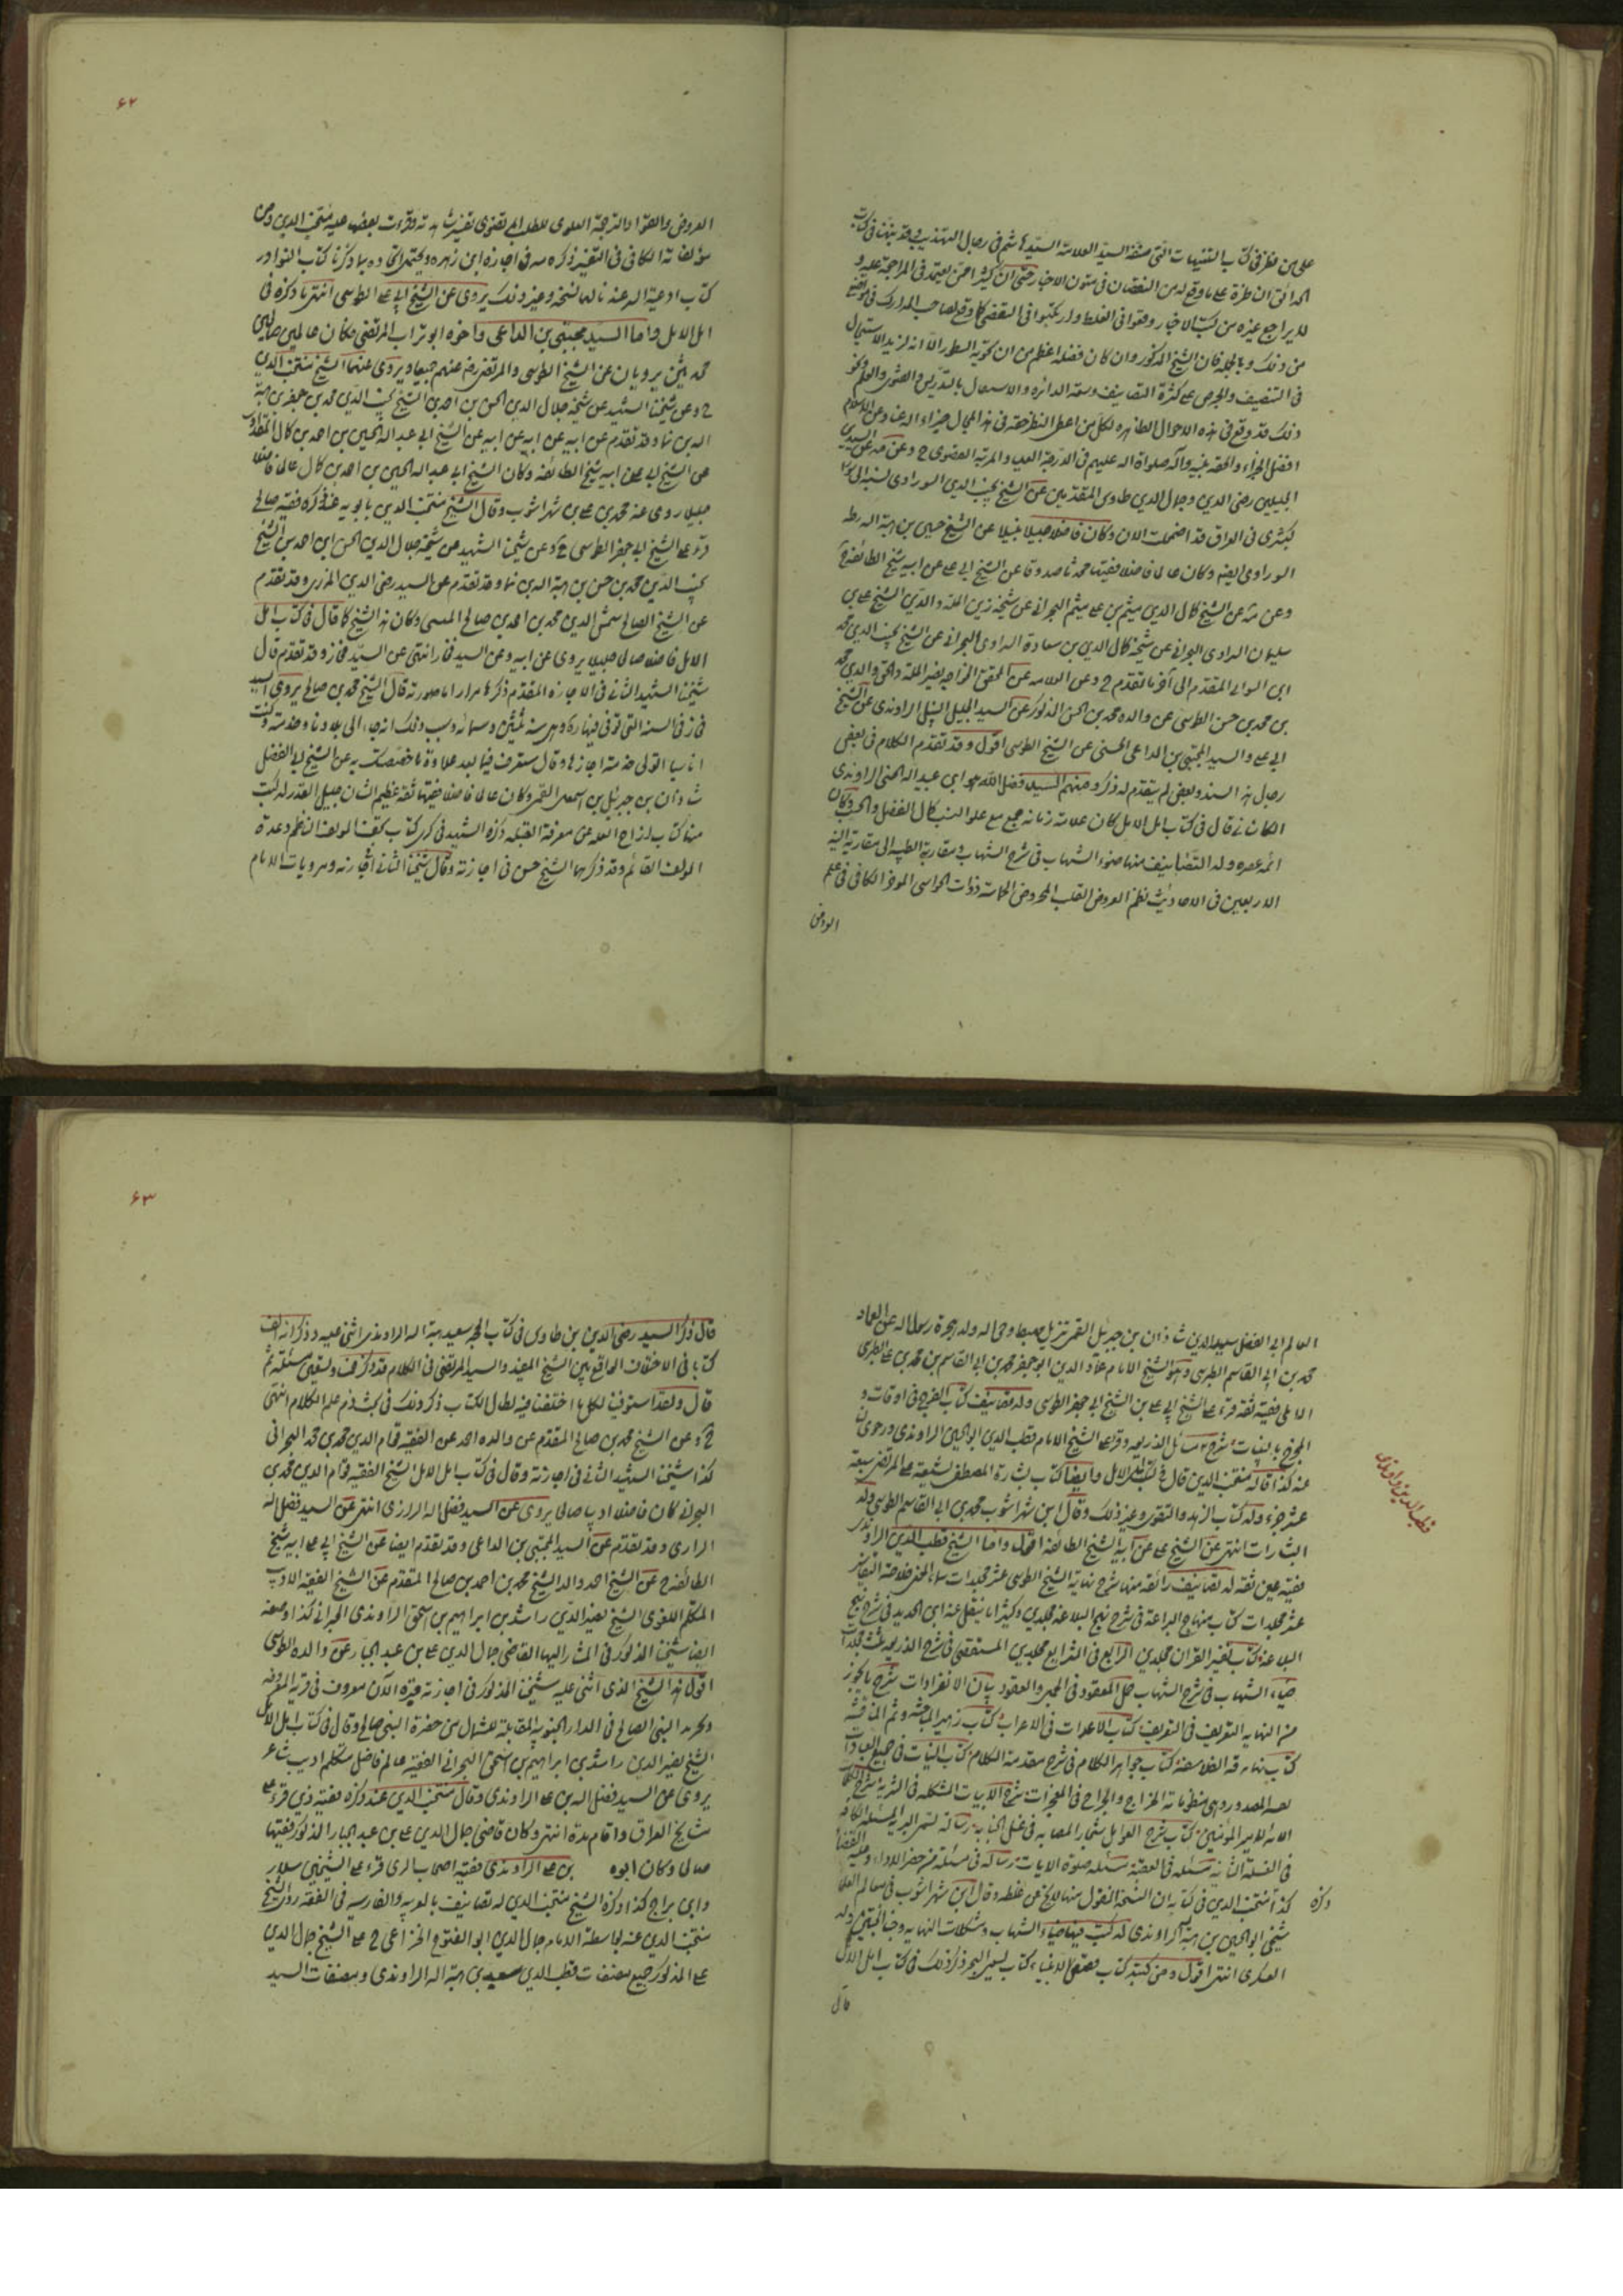 على من نظر في كتاب التنبيهات التي صنفه السيد العلامة السيد هاشم في رجال التهذيب وقد نبهنا في كتاب
الحدائق ان طرة على ما وقع له من النقصان في متون الاخبار حتى ان كثيرا ممن يعتمد في المراجعة عليه و
لا يراجع غيره من كتب الاخبار وقعوا في الغلط وارتكبوا في التقصي كما وقع لصاحب المدارك في مواضع
من ذلك وبالجملة فان الشيخ المذكور وان كان فضله اعظم من ان تحويه السطور الا انه لمزيد الاستعجال
في التصنيف والحرص على كثرة التصانيف وسعة الدائرة والاشتغال بالتدريس والفتوى والعلم ونحو
ذلك قد وقع في هذه الاحوال الظاهرة لكل من اعطى النظر حقه في هذا المجال جزاه الله عنا وعن الاسلام
افضل الجزاء والحقه بنبيه وآله صلواة الله عليهم في الدرجة العليا والمرتبة القصوى ح وعن مه عن السيدين
الجليلين رضي الدين وجمال الدين طاوس المقدمين عن الشيخ نجيب الدين السوراوى نسبة الى سورا
كبشرى في العراق قد اضمحلت الان وكان فاضلا جليلا نبيلا عن الشيخ حسين بن هبة الله رطبه
السوراوى الفقيه وكان عالما فاضلا فقيها محدثا صدوقا عن الشيخ ابي على عن ابيه شيخ الطائفة ح
وعن مه عن الشيخ كمال الدين ميثم بن على ميثم البحراني عن شيخه زين الملة والدين الشيخ على بن
سليمان البحراني عن شيخه كمال الدين بن سعادة البحراني عن الشيخ نجيب الدين محمد
السوراوى المقدم الى آخر ما تقدم ح وعن العلامه عن المحقق الخواجه نصير الملة والحق والدين محمد
بن محمد بن حسن الطوسى عن والده محمد بن الحسن المذكور عن السيد الجليل النبيل الراوندى عن الشيخ
ابى على والسيد المجتبى بن الداعى الحسنى عن الشيخ الطوسى اقول وقد تقدم الكلام في بعض
رجال هذا السند وبعض لم يتقدم له ذكر ومنهم السيد فضل الله هو ابن عبيد الله الحسنى الراوندى
الكاشاني قال في كتاب امل الامل كان علامة زمانه جمع مع علو النسب كمال الفضل والحسب وكان
ائمة عصره وله التصانيف منها ضوء الشهاب في شرح الشهاب ومقاربة الطيبة الى مقارنة النية
الاربعين في الاحاديث نظم العروض للقلب المروض الحماسة ذوات الحواشى الموجز الكافى في علم
العروض
۶۲
العروض والقوافى والترجمة العلوى للطب ... تفسير ... قرأت بعضها عليه منتجب الدين ومن
مؤلفاته الكافى في التفسير ذكره مه في اجازة ابن زهره ويحتمل اتحاده بما ذكرنا كتاب النوادر
كتاب ادعية السر عندنا لها نسخة وغير ذلك يروى عن الشيخ ابى على الطوسى انتهى ما ذكره في
امل الامل واما السيد مجتبى بن الداعى واخوه ابو تراب المرتضى فكان عالمين صالحين
محدثين يرويان عن الشيخ الطوسى والمرتضى رضى عنهم جميعا ويروى عنهما الشيخ منتجب الدين
ح وعن شيخنا الشهيد عن شيخه جلال الدين الحسن بن احمد بن الشيخ نجيب الدين محمد بن جعفر بن هبة
الله بن نما وقد تقدم عن ابيه عن ابيه عن ابيه عن الشيخ ابى عبد الله الحسين بن احمد بن كمال ...
عن الشيخ ابى على عن ابيه شيخ الطائفه وكان الشيخ ابى عبد الله الحسين بن احمد بن كمال عالما فاضلا
جليلا روى عنه محمد بن على بن شهراشوب وقال الشيخ منتجب الدين بابويه عند ذكره فقيه صالح
قرء على الشيخ ابى جعفر الطوسى ح وعن شيخنا الشهيد عن شيخه جلال الدين الحسن ابن احمد بن الشيخ
نجيب الدين محمد بن حسن بن هبة الله بن نما وقد تقدم عن السيد رضى الدين المزرى وقد تقدم
عن الشيخ الصالح شمس الدين محمد بن احمد بن صالح القسينى وكان هذا الشيخ كما قال في كتاب امل
الامل فاضلا صالحا جليلا يروى عن ابيه وعن السيد فخار انتهى عن السيد فخار وقد تقدم قال
شيخنا الشهيد الثاني في الاجازة المقدم ذكرها مرارا ما صورته قال الشيخ محمد بن صالح يروى السيد
فخار في السنة التى توفى فيها ره وهى سنة ثلثين وستمائه وسبب ذلك انه جاء الى بلادنا وخدمته وكنت
انا صبيا اتولى خدمته اجاز لى وقال ستعرف فيما بعد حلاوة ما خصصتك به عن الشيخ ابى الفضل
شاذان بن جبرئيل بن اسمعيل القمى وكان عالما فاضلا فقيها ثقة عظيم الشان جليل القدر له كتب
منها كتاب ازاحة العلة عن معرفة القبلة ذكره الشهيد في كرى كتاب تحفة المؤلف الناظم وعمدة
المؤلف القائم وقد ذكرهما الشيخ حسن في اجازته وقال شيخنا الثاني في اجازته ومرويات الامام
العالم ابى الفضل سديد الدين شاذان بن جبرئيل القمى نزيل مهبط وحى الله ودار هجرة رسول الله عن العماد
محمد بن ابى القاسم الطبرى وهو الشيخ الامام عماد الدين ابو جعفر محمد بن ابى القاسم بن محمد بن على الطبرى
الاملى فقيه ثقه قرء على الشيخ ابى على بن الشيخ ابى جعفر الطوسى وله تصانيف كتاب الفرج في اوقات و
المخرج بالبينات شرح مسائل الذريعه وقرء على الشيخ الامام قطب الدين ابو الحسين الراوندى وروى لنا
عنه كذا قاله منتجب الدين قال في كتاب امل الامل وايضا كتاب بشارة المصطفى لشيعة على المرتضى سبعة
عشر جزء وله كتاب الزهد والتقوى وغير ذلك وقال ابن شهراشوب محمد بن ابى القاسم الطوسى وله
البشارات انتهى عن الشيخ على عن ابيه الشيخ الطائفه اقول واما الشيخ قطب الدين الراوندى
فقيه عين ثقه له تصانيف رائقه منها شرح نهاية الشيخ الطوسى عشر مجلدات سماه المغنى خلاصة التفاسير
عشر مجلدات كتاب منهاج البراعة في شرح نهج البلاغه مجلدين وكثيرا ما ينقل عنه ابى الحديد في شرح نهج
البلاغه كتاب تفسير القران مجلدين الرائع في الشرايع مجلدين المستقصى في شرح الذريعه ثلث مجلدات
ضياء الشهاب في شرح الشهاب حل المعقود في الجمل والعقود بيان الانفرادات شرح ما يجوز
من النهايه التغريب في التعريب كتاب الاغراب في الاعراب كتاب زهير المباحثه وثمر المناقشه
كتاب تهافت الفلاسفه كتاب جواهر الكلام في شرح مقدمة الكلام كتاب النيات في جميع العبادات
نفثة المصدور وهى منظوماته الخرائج والجرائح في المعجزات شرح الابيات المشكلة في التنزيه شرح الكلمات
المائة لامير المؤمنين كتاب شرح العوامل شجار العصابه في غسل الجنابه رسالة ... المسئلة الكافيه
في الغسلة الثانية مسئله في العقيقه مسئله صلوة الايات رسالة في مسئله من حضر الاداء وعليه القضاء
كذا منتجب الدين في كتابه ان النسخة المنقول منها لا تخلو عن غلطه وقال ابن شهراشوب في معالم العلماء
ذكره
شيخى ابو الحسين بن هبة الله الراوندى له كتب منها ضياء الشهاب ومشكلات النهايه وجنا الجنتين في ولد
العسكرى انتهى اقول ومن كتبه كتاب قصص الانبياء كتاب ... ذكر ذلك في كتاب امل الامل
قال
قطب الدين راوندى
۶۳
قال ذكر السيد رضى الدين بن طاوس في كتاب المحجة سعيد هبة الله الراوندى اثنى عليه وذكر انه الف
كتابا في الاختلاف الواقع بين الشيخ المفيد والسيد المرتضى في الكلام قد ذكر خمسه وتسعين مسئله ثم
قال ولقد استوفيت لكل ما اختلفنا فيه لطال الكتاب ذكر ذلك في بحث ذم علم الكلام انتهى
ح وعن الشيخ محمد بن صالح المقدم عن والده احمد عن الفقيه قوام الدين محمد بن محمد البحرانى
كذا شيخنا الشهيد الثاني في اجازته وقال في كتاب امل الامل الشيخ الفقيه قوام الدين محمد بن
البحرانى كان فاضلا اديبا صالحا يروى عن السيد فضل الله الراوندى انتهى عن السيد فضل الله
الراوندى وقد تقدم عن السيد المجتبى بن الداعى وقد تقدم ايضا عن الشيخ ابى على ابيه شيخ
الطائفة ح عن الشيخ احمد والد الشيخ محمد بن احمد بن صالح المتقدم عن الشيخ الفقيه الاديب
المتكلم اللغوى الشيخ نصير الدين راشد بن ابراهيم بن اسحق الراوندى البحراني كذا وصفه
ايضا شيخنا المذكور في المشار اليها القاضى جمال الدين على بن عبد الجبار عن والده الطوسى
اقول هذا الشيخ الذى اثنى عليه شيخنا المذكور في اجازته وقبره الان معروف في قرية المعروفه
وبحريه النبى الصالح في الدار الجنوبيه المقابلة للشمال من حضرة النبى صالح وقال في كتاب امل الامل
الشيخ نصير الدين راشد بن ابراهيم بن اسحق البحرانى الفقيه عالم فاضل متكلم اديب شاعر
يروى عن السيد فضل الله بن على الراوندى وقال منتجب الدين عند ذكره فقيه دين قرء على
مشايخ العراق واقام مدة انتهى وكان قاضى جمال الدين على بن عبد الجبار المذكور فقيها
صالحا وكان ابوه بن على الراوندى فقيه اصحاب الرى قرء على الشيخين سلار
وابن براج كذا ذكره الشيخ منتجب الدين له تصانيف بالعربيه والفارسيه في الفقه روى الشيخ
منتجب الدين عنه بواسطة الامام جمال الدين ابو الفتوح الخزاعى ح على الشيخ جمال الدين
على المذكور جميع مصنفات قطب الدين سعيد بن هبة الله الراوندى ومصنفات السيد